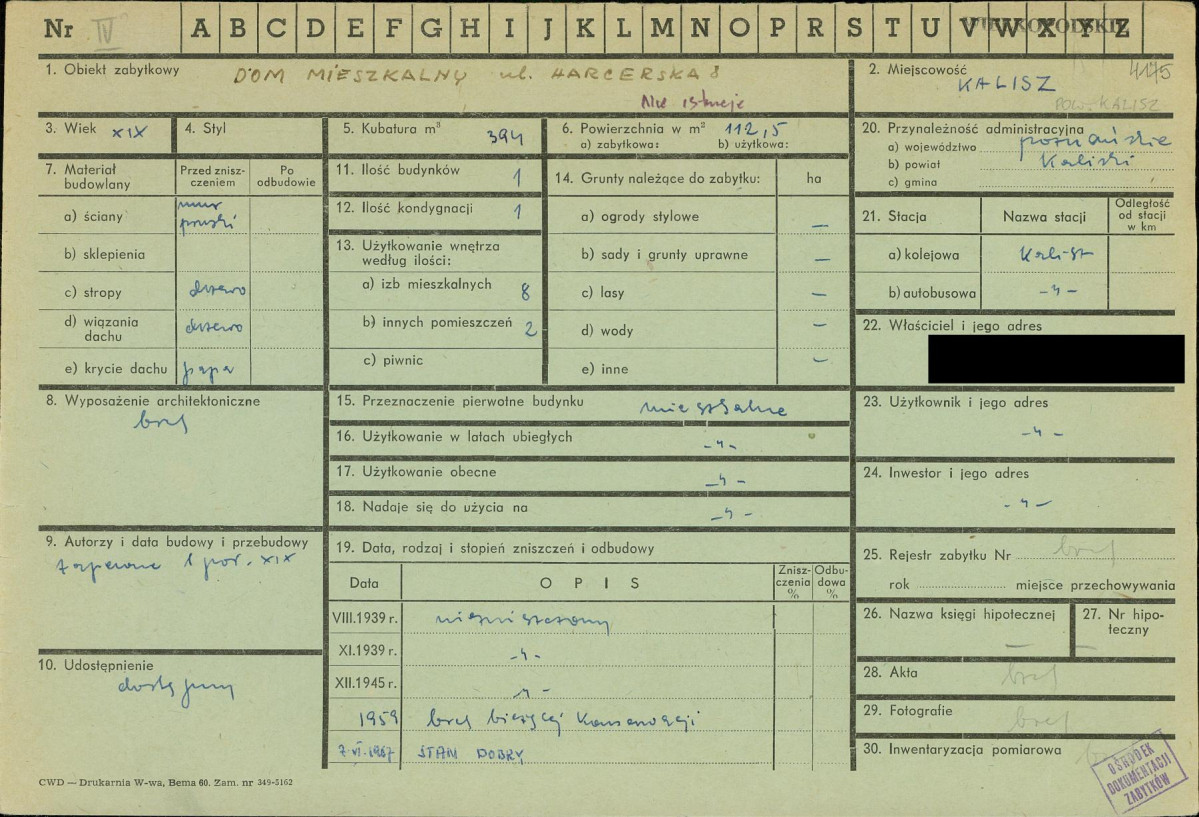 Nr IV A B C D E F G H I J K L M N O P R S T U V W X Y Z
1. Obiekt zabytkowy DOM MIESZKALNY ul. HARCERSKA 8
Nie istnieje
2. Miejscowość 4145
KALISZ
POW. KALISZ
3. Wiek XIX
4. Styl
5. Kubatura m³ 394
6. Powierzchnia w m² 112,5
a) zabytkowa: b) użytkowa:
20. Przynależność administracyjna
a) województwo poznańskie
b) powiat Kaliski
c) gmina
7. Materiał budowlany
Przed zniszczeniem
Po odbudowie
a) ściany mur pruski
b) sklepienia
c) stropy drzewo
d) wiązania dachu drzewo
e) krycie dachu papa
11. Ilość budynków 1
12. Ilość kondygnacji 1
13. Użytkowanie wnętrza
według ilości:
a) izb mieszkalnych 8
b) innych pomieszczeń 2
c) piwnic
14. Grunty należące do zabytku: ha
a) ogrody stylowe —
b) sady i grunty uprawne —
c) lasy —
d) wody —
e) inne —
21. Stacja
Nazwa stacji
Odległość
od stacji
w km
a) kolejowa Kalisz
b) autobusowa -"-
22. Właściciel i jego adres
8. Wyposażenie architektoniczne
brak
15. Przeznaczenie pierwotne budynku mieszkalne
16. Użytkowanie w latach ubiegłych -"-
17. Użytkowanie obecne -"-
18. Nadaje się do użycia na -"-
23. Użytkownik i jego adres
-"-
24. Inwestor i jego adres
-"-
9. Autorzy i data budowy i przebudowy
zapewne 1 poł. XIX
10. Udostępnienie
dostępny
19. Data, rodzaj i stopień zniszczeń i odbudowy
Data
OPIS
Zniszczenia %
Odbudowa %
VIII.1939 r. niezniszczony
XI.1939 r. -"-
XII.1945 r. -"-
1959 brak bieżącej konserwacji
7.VI.1967 STAN DOBRY
25. Rejestr zabytku Nr brak
rok miejsce przechowywania
26. Nazwa księgi hipotecznej —
27. Nr hipoteczny —
28. Akta brak
29. Fotografie brak
30. Inwentaryzacja pomiarowa
OŚRODEK
DOKUMENTACJI
ZABYTKÓW
CWD — Drukarnia W-wa, Bema 60. Zam. nr 349-5162